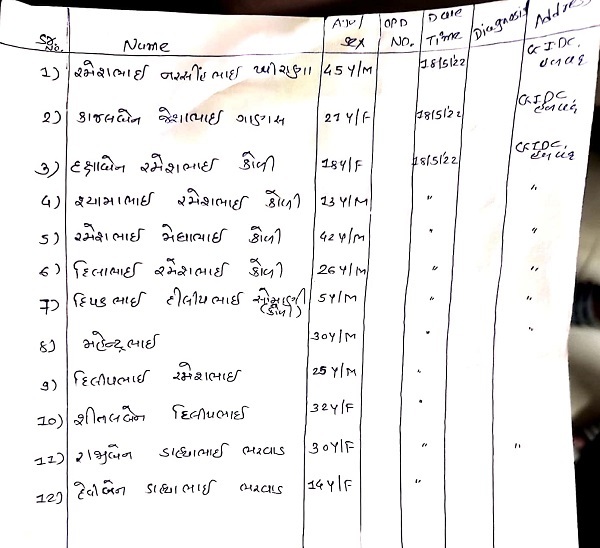 Sr. No. Name Age/Sex OPD NO. Date Time Diagnosis Address
1) રમેશભાઈ નરસીંહભાઈ 45Y/M 18/5/22 GIDC, હળવદ
2) કાજલબેન જેશાભાઈ 21Y/F 18/5/22 GIDC, હળવદ
3) દક્ષાબેન રમેશભાઈ કોળી 18Y/F 18/5/22 GIDC, હળવદ
4) શ્યામાભાઈ રમેશભાઈ કોળી 13Y/M " "
5) રમેશભાઈ મેઘાભાઈ કોળી 42Y/M " "
6) દિલાભાઈ રમેશભાઈ કોળી 26Y/M " "
7) દિપકભાઈ દીલીપભાઈ (કોળી) 5Y/M " "
8) મહેન્દ્રભાઈ 30Y/M " "
9) દિલીપભાઈ રમેશભાઈ 25Y/M "
10) શીતલબેન દિલીપભાઈ 32Y/F "
11) રાજુબેન ડાહ્યાભાઈ ભરવાડ 30Y/F " "
12) દેવીબેન ડાહ્યાભાઈ ભરવાડ 14Y/F "